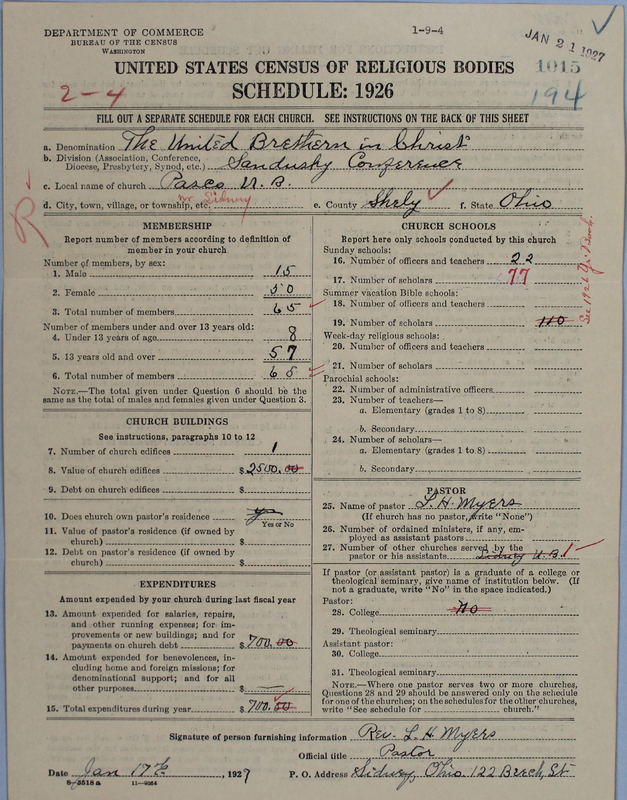 DEPARTMENT OF COMMERCE
BUREAU OF THE CENSUS
WASHINGTON
1-9-4
JAN 21 1927
1015
194
2-4
UNITED STATES CENSUS OF RELIGIOUS BODIES
SCHEDULE: 1926
FILL OUT A SEPARATE SCHEDULE FOR EACH CHURCH. SEE INSTRUCTIONS ON THE BACK OF THIS SHEET
a. Denomination The United Brethern in Christ
b. Division (Association, Conference, Diocese, Presbytery, Synod, etc.) Sandusky Conference
c. Local name of church Pasco U.B.
d. City, town, village, or township, etc. nr Sidney e. County Shely f. State Ohio
R
MEMBERSHIP
Report number of members according to definition of
member in your church
Number of members, by sex:
1. Male 15
2. Female 50
3. Total number of members 65
Number of members under and over 13 years old:
4. Under 13 years of age 8
5. 13 years old and over 57
6. Total number of members 65
NOTE.—The total given under Question 6 should be the
same as the total of males and females given under Question 3.
CHURCH BUILDINGS
See instructions, paragraphs 10 to 12
7. Number of church edifices 1
8. Value of church edifices $2500.00
9. Debt on church edifices $
10. Does church own pastor's residence yes
Yes or No
11. Value of pastor's residence (if owned by
church) $
12. Debt on pastor's residence (if owned by
church) $
EXPENDITURES
Amount expended by your church during last fiscal year
13. Amount expended for salaries, repairs,
and other running expenses; for im-
provements or new buildings; and for
payments on church debt $700.00
14. Amount expended for benevolences, in-
cluding home and foreign missions; for
denominational support; and for all
other purposes $ —
15. Total expenditures during year $700.00
CHURCH SCHOOLS
Report here only schools conducted by this church
Sunday schools:
16. Number of officers and teachers 22
17. Number of scholars 77
Summer vacation Bible schools:
18. Number of officers and teachers
19. Number of scholars 110
Week-day religious schools:
20. Number of officers and teachers
21. Number of scholars
Parochial schools:
22. Number of administrative officers
23. Number of teachers—
a. Elementary (grades 1 to 8)
b. Secondary
24. Number of scholars—
a. Elementary (grades 1 to 8)
b. Secondary
See 1926 Yr. Book
PASTOR
25. Name of pastor L. H. Myers
(If church has no pastor, write "None")
26. Number of ordained ministers, if any, em-
ployed as assistant pastors
27. Number of other churches served by the
pastor or his assistants Sidney U.B. 1
If pastor (or assistant pastor) is a graduate of a college or
theological seminary, give name of institution below. (If
not a graduate, write "No" in the space indicated.)
Pastor:
28. College No
29. Theological seminary
Assistant pastor:
30. College
31. Theological seminary
NOTE.—Where one pastor serves two or more churches,
Questions 28 and 29 should be answered only on the schedule
for one of the churches; on the schedules for the other churches,
write "See schedule for church."
Signature of person furnishing information Rev. L. H. Myers
Official title Pastor
Date Jan 17th, 1927 P. O. Address Sidney, Ohio. 122 Beech, St
8-5518a 11-9054